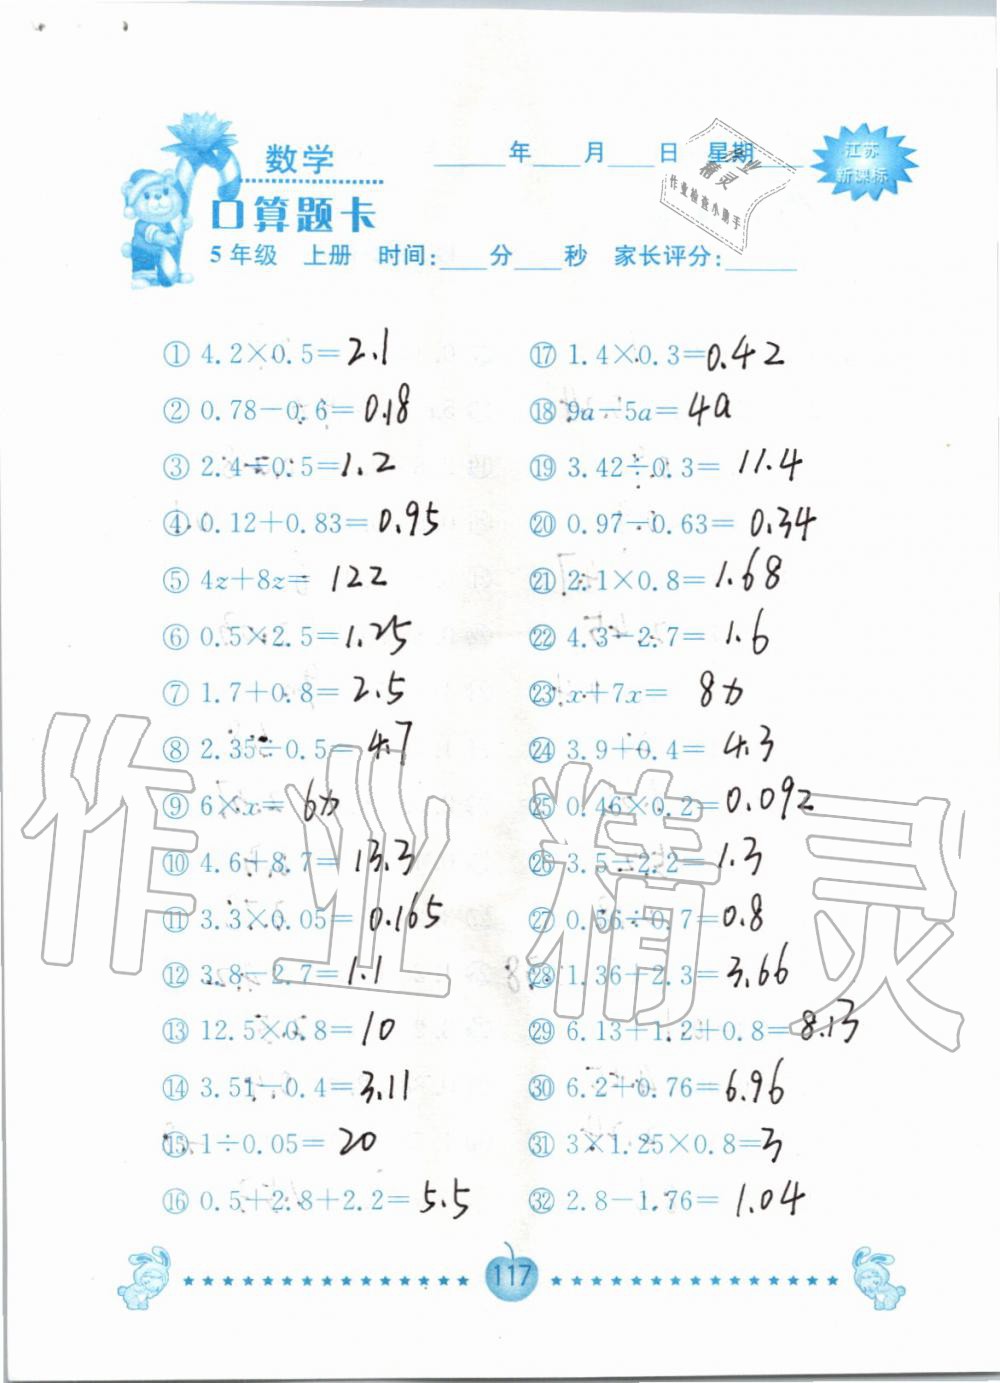 数学
____年___月___日 星期___
江苏
新课标
作业
精灵
作业检查小助手
口算题卡
5年级 上册 时间:___分___秒 家长评分:_____
① 4.2×0.5=2.1
② 0.78-0.6=0.18
③ 2.4-0.5=1.2
④ 0.12+0.83=0.95
⑤ 4z+8z=12z
⑥ 0.5×2.5=1.25
⑦ 1.7+0.8=2.5
⑧ 2.35÷0.5=4.7
⑨ 6×x=6x
⑩ 4.6+8.7=13.3
⑪ 3.3×0.05=0.165
⑫ 3.8-2.7=1.1
⑬ 12.5×0.8=10
⑭ 3.51-0.4=3.11
⑮ 1÷0.05=20
⑯ 0.5+2.8+2.2=5.5
⑰ 1.4×0.3=0.42
⑱ 9a-5a=4a
⑲ 3.42÷0.3=11.4
⑳ 0.97-0.63=0.34
㉑ 2.1×0.8=1.68
㉒ 4.3-2.7=1.6
㉓ x+7x=8x
㉔ 3.9+0.4=4.3
㉕ 0.46×0.2=0.092
㉖ 3.5-2.2=1.3
㉗ 0.56÷0.7=0.8
㉘ 1.36+2.3=3.66
㉙ 6.13+1.2+0.8=8.13
㉚ 6.2+0.76=6.96
㉛ 3×1.25×0.8=3
㉜ 2.8-1.76=1.04
作业精灵
117